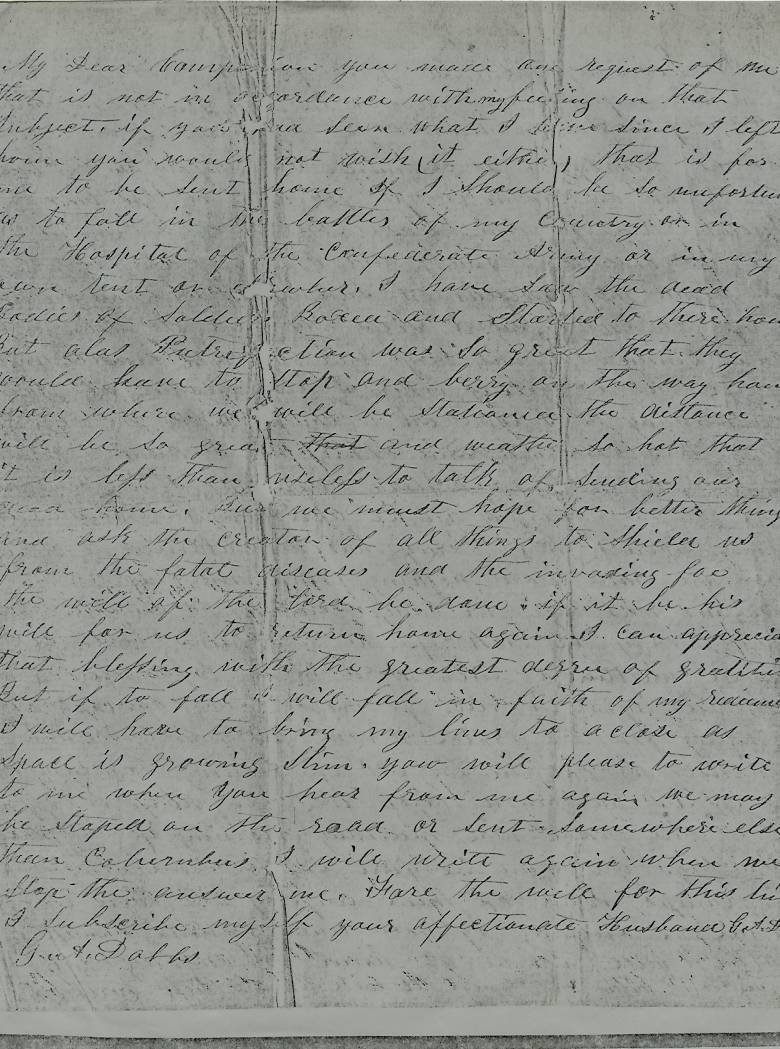 My Dear Companion you made one request of me
that is not in accordance with my feeling on that
subject. if you had seen what I have since I left
home you would not wish (it either) that is for
me to be sent home If I should be so unfortun
as to fall in the battles of my Country or in
the Hospital of the Confederate Army or in my
own tent or elsewher. I have saw the dead
Bodies of Soldiers Boxed and Started to there hom
But alas Putrefection was so great that they
would have to stop and berry on the way hom
from where we will be stationed the distance
will be so great that and weather so hot that
it is less than useless to talk of sending our
dead home. But we must hope for better thing
and ask the creator of all things to shield us
from the fatal diseases and the invading foe
the will of the lord be done. if it be his
will for us to return home again I can apprecia
that blessing with the greatest degree of gratitu
But if to fall I will fall in faith of my redeeme
I will have to bring my lines to a close as
Space is growing Slim. you will please to write
to me when you hear from me again we may
be Stoped on the road or sent Somewhere else
than Columbus I will write again when we
Stop the answer me. Fare the well for this ti
I subscribe myself your affectionate Husband G.A.D
G. A. Dabbs